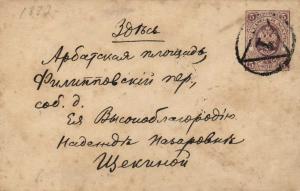 1832
Здѣсь
Арбатская площадь,
Филипповскій пер,
соб. д.
Ея Высокоблагородію
Надеждѣ Назаровнѣ
Щекиной